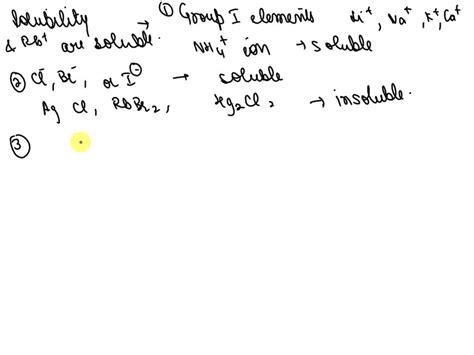 Solubility → ① Group I elements Li⁺, Na⁺, K⁺, Cs⁺
& Rb⁺ are soluble. NH₄⁺ ion → soluble
② Cl⁻, Br⁻, or I⁻ → soluble
Ag Cl, PbBr₂, Hg₂Cl₂ → insoluble.
③